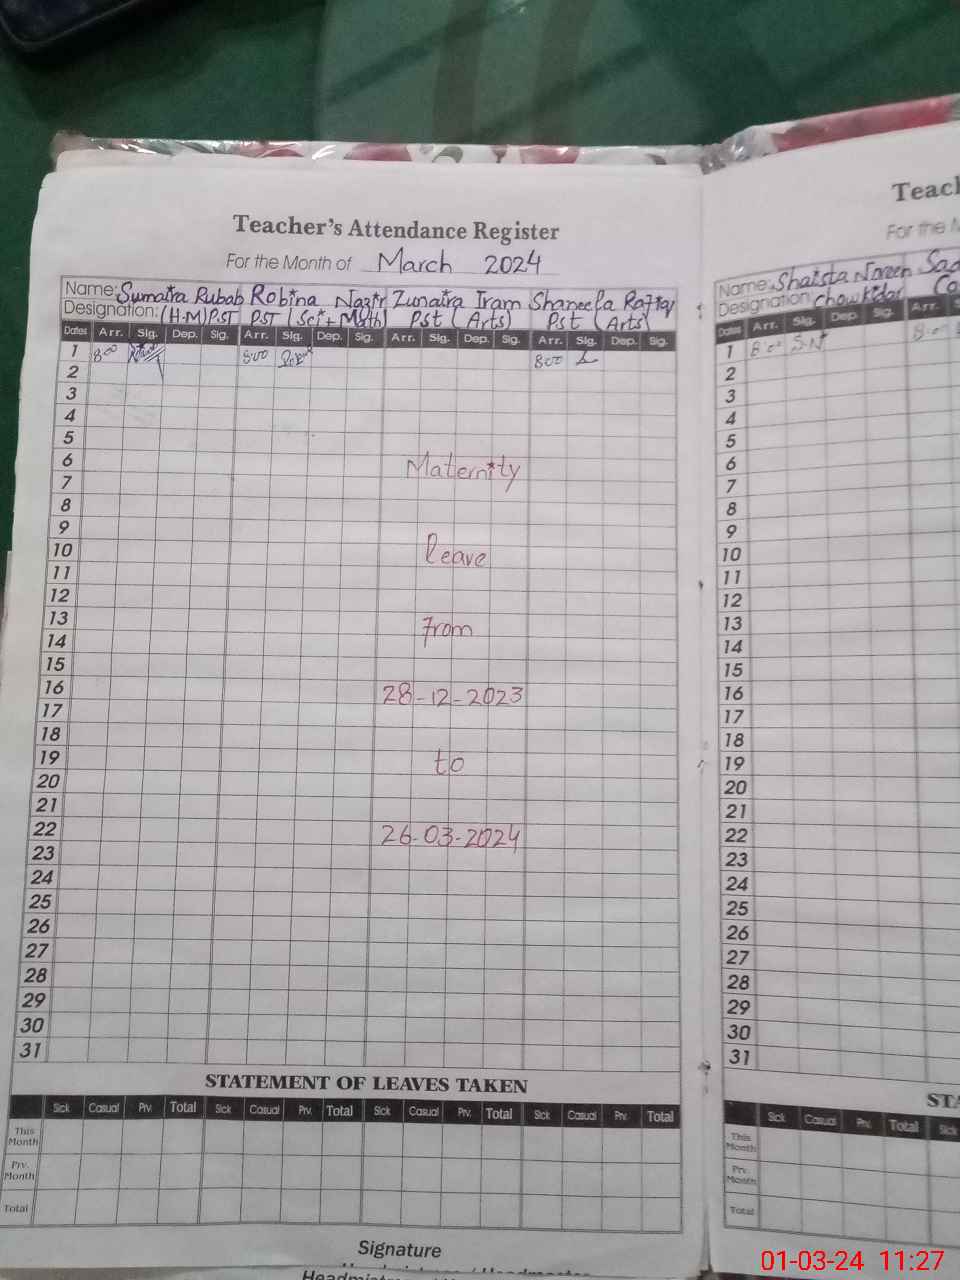 Teacher's Attendance Register
For the Month of March 2024
Name: Sumaira Rubab Robina Nazir Zunaira Iram Shaneela Raffaq
Designation: (H.M) PST PST (Sci + Math) Pst (Arts) Pst (Arts)
Dates Arr. Sig. Dep. Sig. Arr. Sig. Dep. Sig. Arr. Sig. Dep. Sig. Arr. Sig. Dep. Sig.
1 8:00 8:00 8:00
2
3
4
5
6 Maternity
7
8
9
10 leave
11
12
13 From
14
15
16 28-12-2023
17
18
19 to
20
21
22 26-03-2024
23
24
25
26
27
28
29
30
31
STATEMENT OF LEAVES TAKEN
Sick Casual Prv. Total Sick Casual Prv. Total Sick Casual Prv. Total Sick Casual Prv. Total
This Month
Prv. Month
Total
Signature
Teach
For the M
Name: Shaista Noreen
Designation: Chowkidar
Dates Arr. Sig. Dep. Sig. Arr.
1 8:00 S.N 8:00
2
3
4
5
6
7
8
9
10
11
12
13
14
15
16
17
18
19
20
21
22
23
24
25
26
27
28
29
30
31
STA
Sick Casual Prv. Total Sick
This Month
Prv. Month
Total
01-03-24 11:27